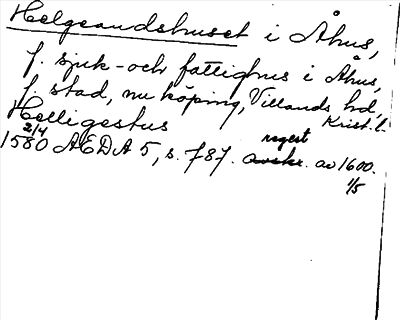 Helgeandshuset i Åhus,
f. sjuk- och fattighus i Åhus,
f. stad, nu köping, Villands hd,
Krist. l.
Helligestus
1580 2/4 AEDA 5, s. 787. regest av 1600.
1/5